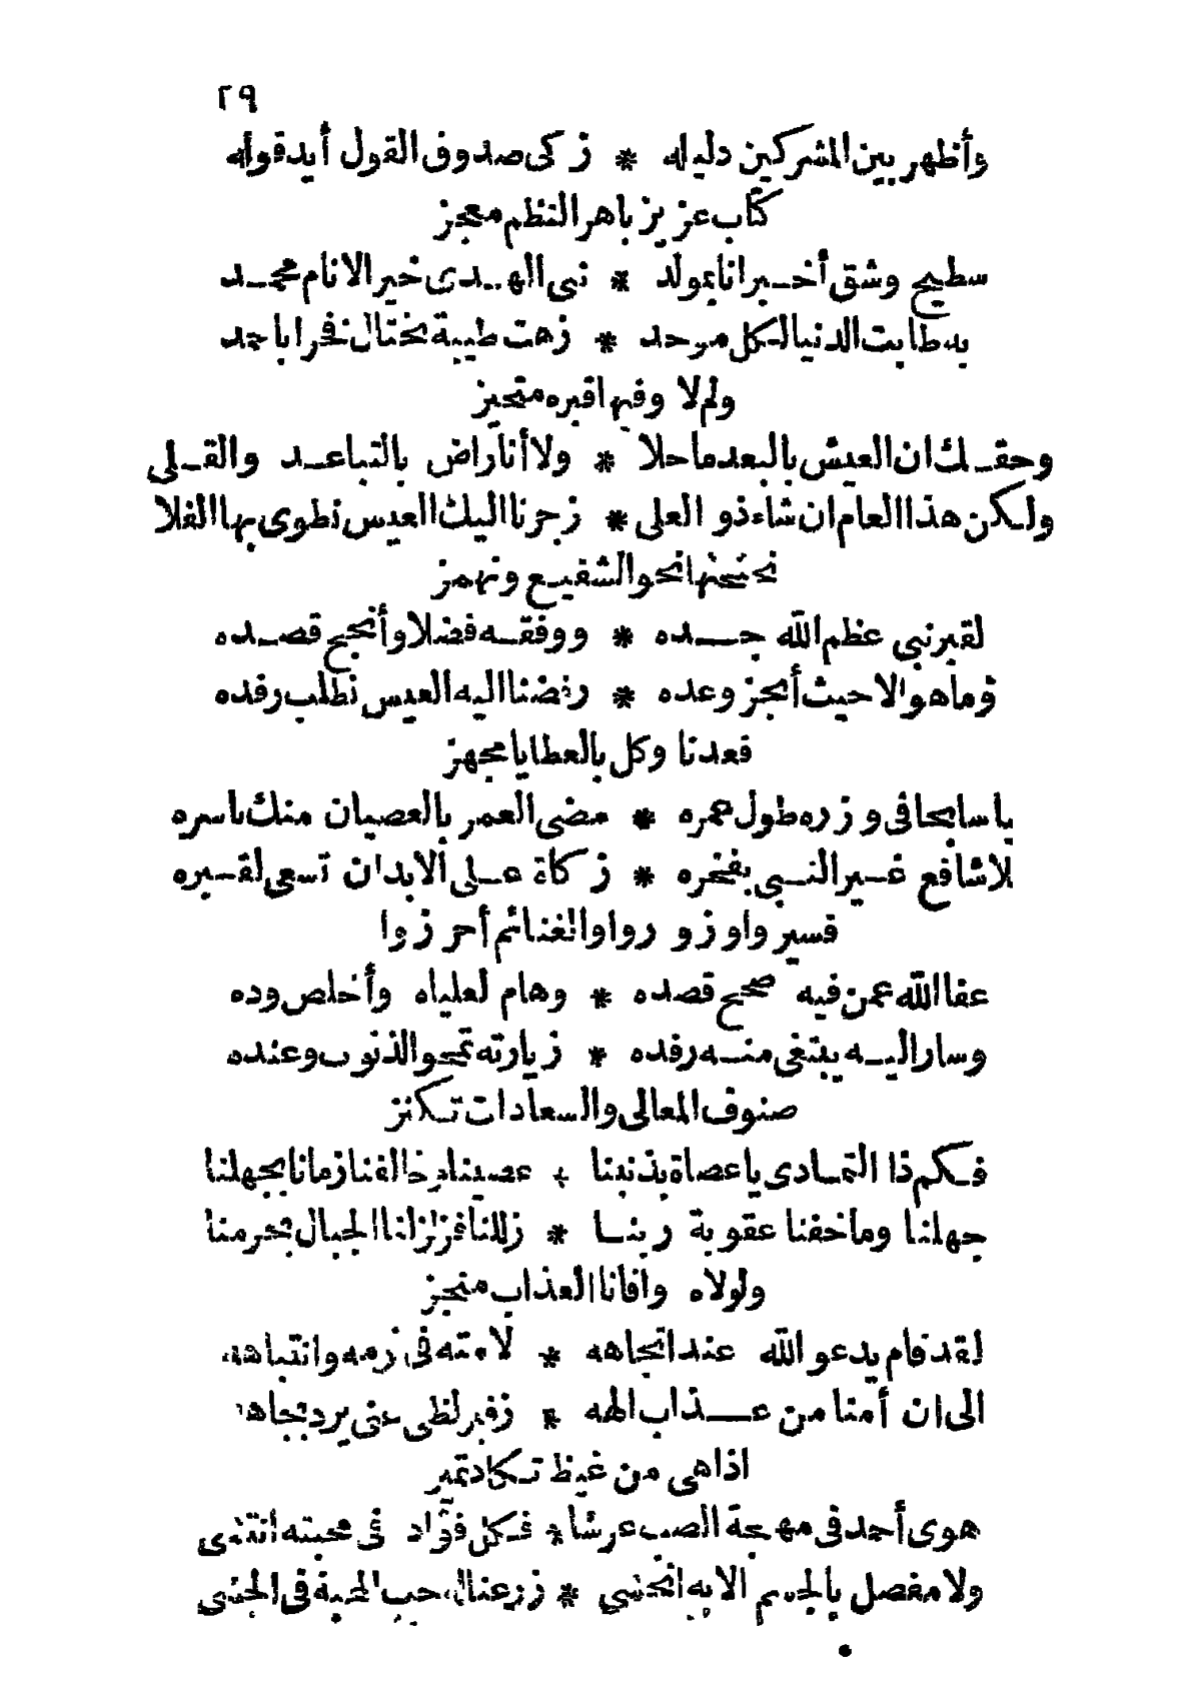 ٢٩
وأظهر بين المشركين دليله * زكى صدوق القول أيد قوله
كتاب عزيز باهر النظم معجز
سطيح وشق أخبرانا بمولد * نبى الهدى خير الانام محمد
به طابت الدنيا لكل موحد * زهت طيبة تختال فخرا باحمد
ولم لا وفيها قبره متحيز
وحقك ان العيش بالبعد ما حلا * ولا أنا راض بالتباعد والقلى
ولكن هذا العام ان شاء ذو العلى * زجرنا اليك العيس نطوى بها الفلا
نحثحثها نحو الشفيع ونهمز
لقبر نبى عظم الله جده * ووفقه فضلا وأنجح قصده
وما هو الا حيث أنجز وعده * رفضنا اليه العيس نطلب رفده
فعدنا وكل بالعطايا مجهز
يا سابحا فى وزره طول عمره * مضى العمر بالعصيان منك باسره
لا شافع غير النبى بفخره * زكاة على الابدان تسعى لقبره
فسيروا وزوروا والغنائم أحرزوا
عفا الله عمن فيه صحح قصده * وهام لعلياه وأخلص وده
وسار اليه يبتغى منه رفده * زيارته تمحو الذنوب وعنده
صنوف المعالى والسعادات تكنز
فكم ذا التمادى يا عصاة بذنبنا * عصينا الفنا زمانا بجهلنا
جهلنا وما خفنا عقوبة ربنا * زللنا فزلزلنا الجبال بجرمنا
ولولاه وافانا العذاب منجز
لقد قام يدعو الله عند اتجاهه * لامته فى نومه وانتباهه
الى ان أمنا من عذاب الهه * زفير لظى عنى يرد بجاهه
اذا هى من غيظ تكاد تميز
هوى أحمد فى مهجة الصب عرشا * فكل فؤاد فى محبته انتشى
ولا مفصل بالجسم الا به انحشى * زرعنا حب المحبة فى الحشى